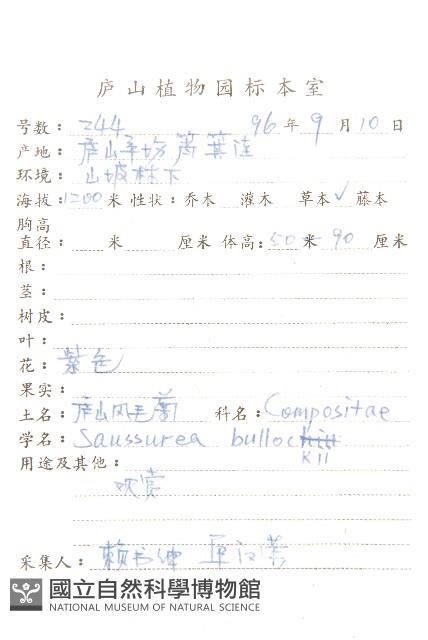 庐山植物园标本室
号数：244 96年9月10日
产地：庐山
环境：山坡林下
海拔：1200米 性状：乔木 灌木 草本✓ 藤本
胸高
直径： 米 厘米 体高：50米 90 厘米
根：
茎：
树皮：
叶：
花：紫色
果实：
土名：庐山风毛菊 科名：Compositae
学名：Saussurea bullockii
用途及其他：
观赏
采集人：赖书绅
國立自然科學博物館
NATIONAL MUSEUM OF NATURAL SCIENCE